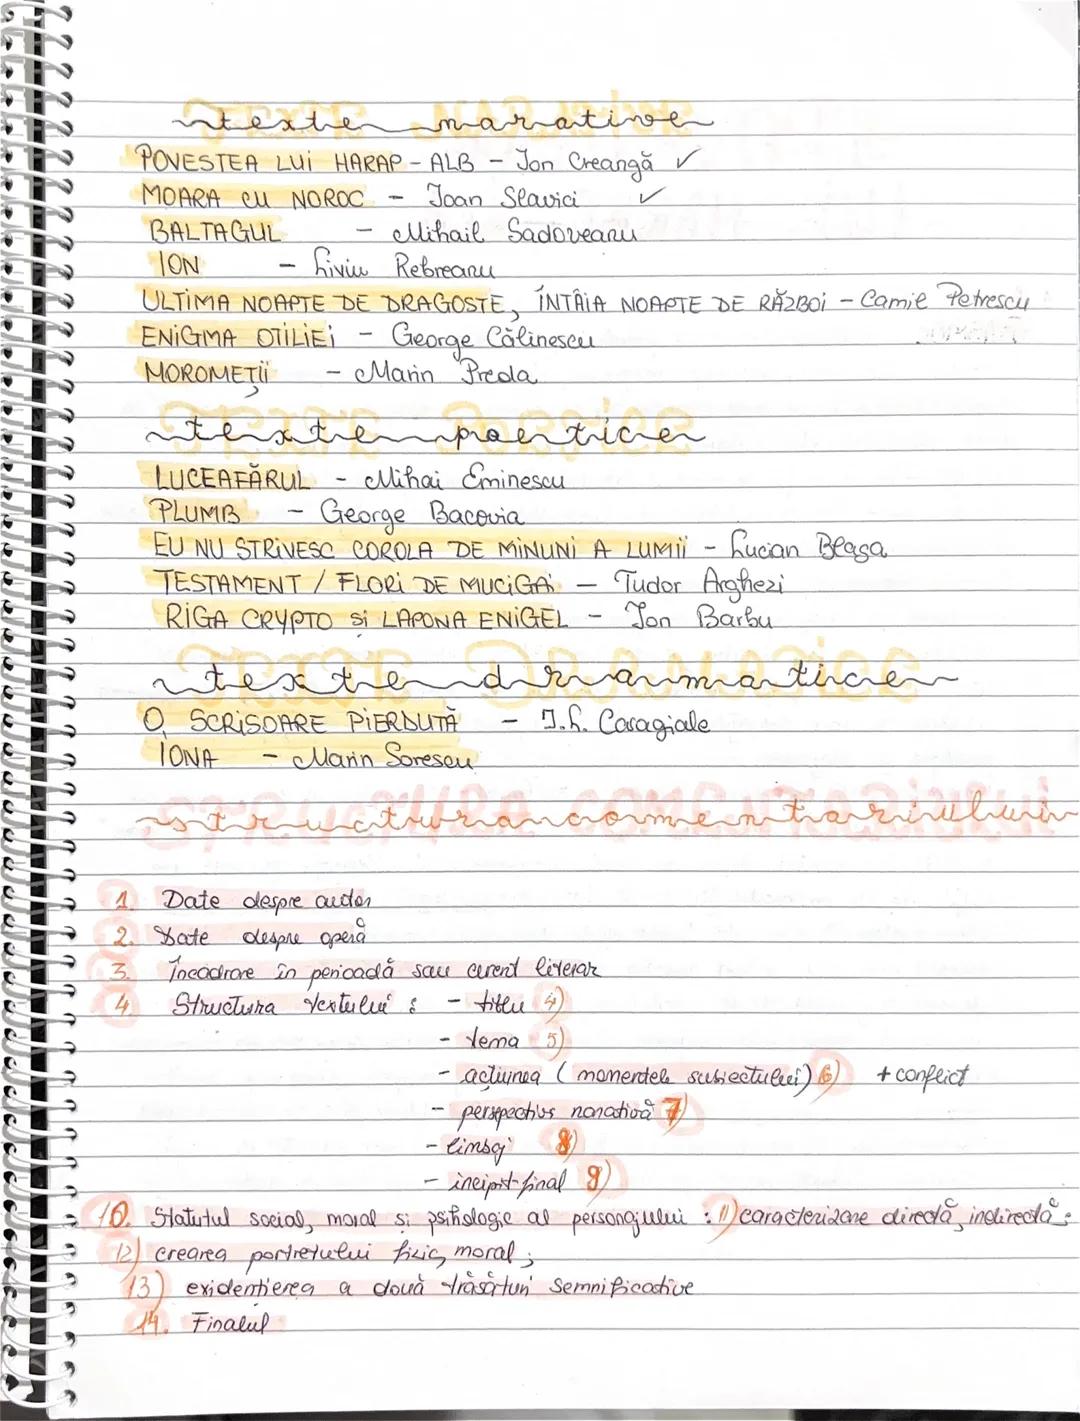 texte narative
POVESTEA LUI HARAP-ALB - Ion Creangă ✓
MOARA CU NOROC - Ioan Slavici ✓
BALTAGUL - Mihail Sadoveanu
ION - Liviu Rebreanu
ULTIMA NOAPTE DE DRAGOSTE, ÎNTÂIA NOAPTE DE RĂZBOI - Camil Petrescu
ENIGMA OTILIEI - George Călinescu
MOROMEȚII - Marin Preda
texte poetice
LUCEAFĂRUL - Mihai Eminescu
PLUMB - George Bacovia
EU NU STRIVESC COROLA DE MINUNI A LUMII - Lucian Blaga
TESTAMENT / FLORI DE MUCIGAI - Tudor Arghezi
RIGA CRYPTO SI LAPONA ENIGEL - Ion Barbu
texte dramatice
O SCRISOARE PIERDUTĂ - I.L. Caragiale
IONA - Marin Sorescu
structura comentariului
1. Date despre autor
2. Date despre operă
3. Încadrare în perioadă sau curent literar
4. Structura textului : - titlu 4)
- tema 5)
- acțiunea (momentele subiectului) 6) + conflict
- perspectiva narativă 7)
- limbaj 8)
- incipit-final 9)
10. Statutul social, moral si psihologic al personajului : 11) caracterizare directă, indirectă;
12) crearea portretului fizic, moral ;
13) evidentierea a două trăsături semnificative
14. Finalul